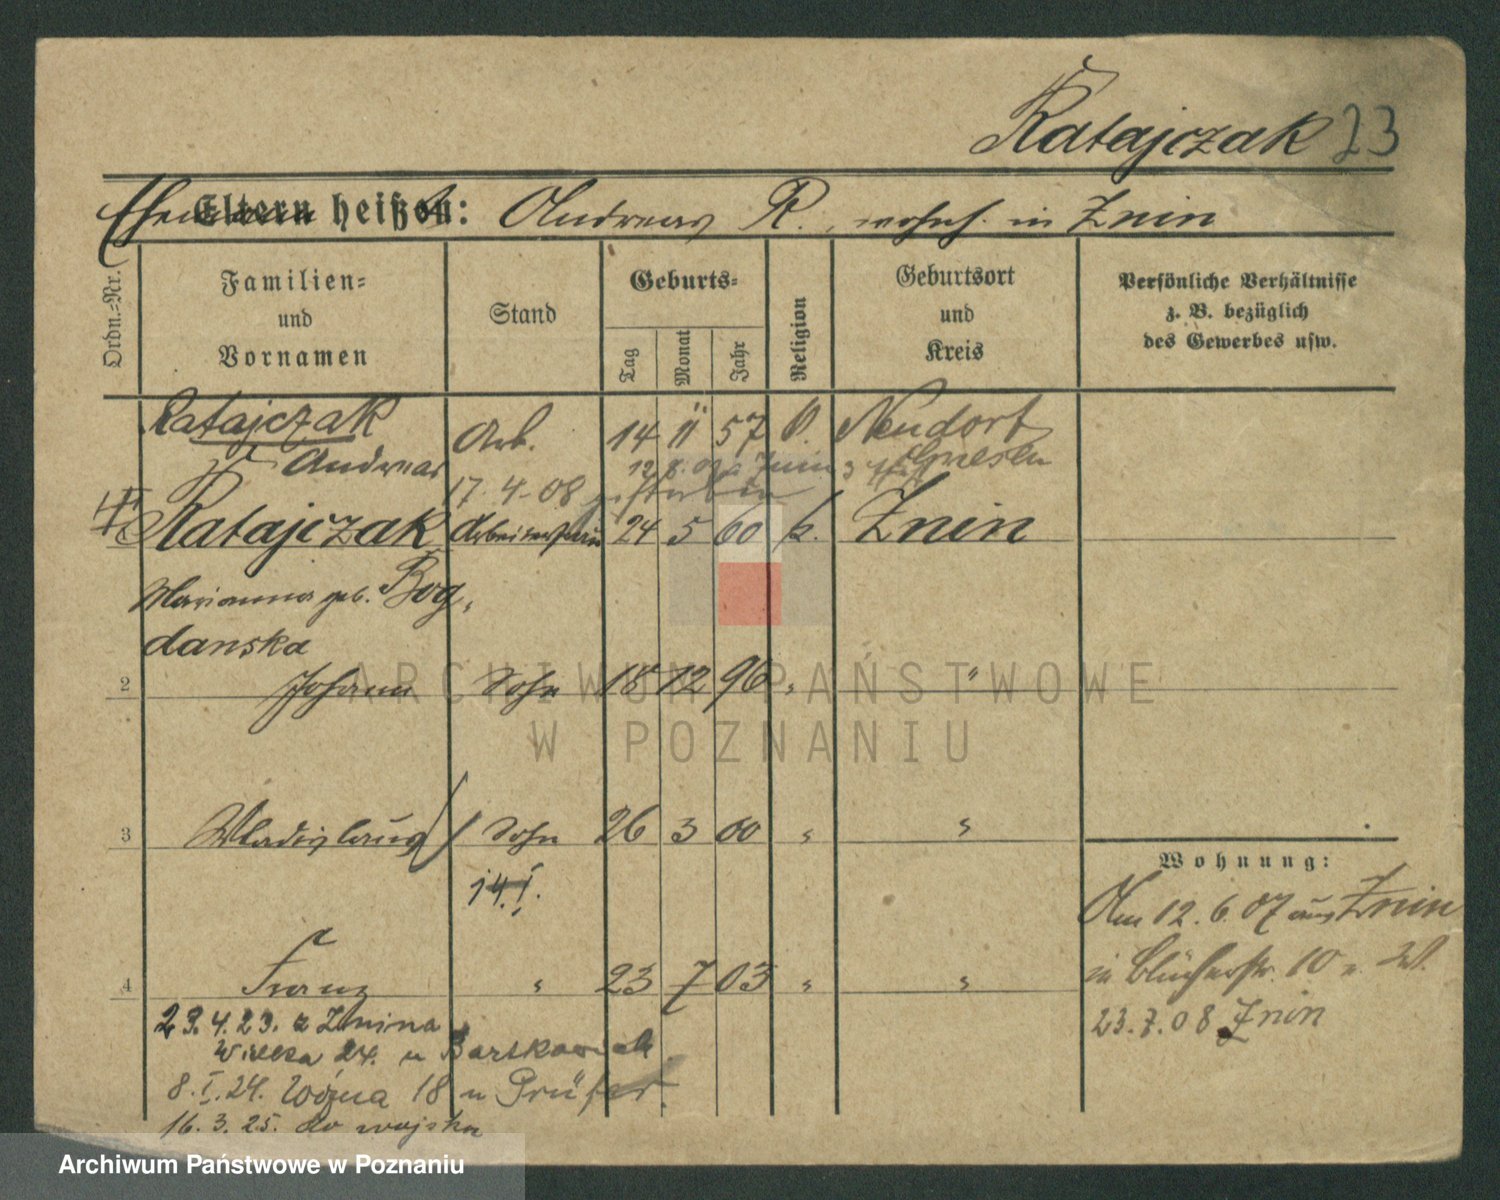 Ratajczak 23
Eltern heißen: Ehemann Andreas R., wohnh. in Znin
Ordn.-Nr.
Familien- und Vornamen
Stand
Geburts-
Tag
Monat
Jahr
Religion
Geburtsort und Kreis
Persönliche Verhältnisse
z. B. bezüglich
des Gewerbes usw.
Ratajczak Arb. 14 11 57 Neudorf
Andreas Gnesen
17.4.08 gestorben
Ratajczak Arbeiterfrau 24 5 60 k. Znin
Marianna geb. Bog-
danska
2 Johann Sohn 18 12 96 " "
3 Wladislaus Sohn 26 3 00 " "
14.I.
Wohnung:
Am 12.6.07 aus Znin
in Blücherstr. 10 n. W.
23.7.08 Znin
4 Franz " 23 7 03 " "
23.4.23. z Żnina
Wielka 24. u Bartkowiak
8.I.24. Woźna 18 u Prüfer.
16.3.25. do wojska
ARCHIWUM PAŃSTWOWE
W POZNANIU
Archiwum Państwowe w Poznaniu